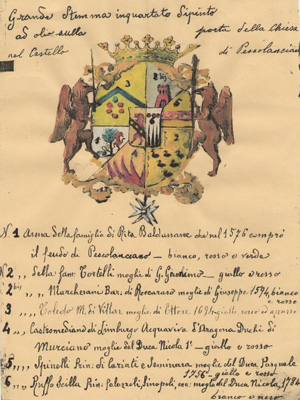 Grande Stemma inquartato dipinto
ad olio sulla porta della Chiesa
nel Castello di Pescolanciano
N 1 Arma della famiglia di Rita Baldassarre che nel 1576 comprò
il feudo di Pescolanciano — bianco, rosso e verde
N 2 „ della fam. Tortelli moglie di G. Gerolimo — giallo e rosso
2 bis „ Marchesani Bar: di Roccaraso moglie di Giuseppe 1574 bianco
e rosso
3 „ Toledo M. di Villar moglie di Ettore
4 „ Castromediano di Limburgo Acquaviva d'Aragona Duchi di
Murciano moglie del Duca Nicola 1° — giallo e rosso
5 „ Spinelli Prin: di Cariati e Seminara moglie del Duca Pasquale
1756 — giallo e rosso
6 „ Ruffo Scilla Prin: Palazzoli, Sinopoli, moglie del Duca Nicola
bianco e nero